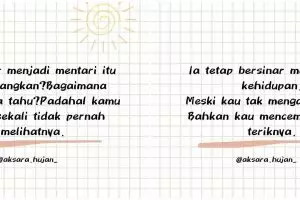 menjadi mentari itu
angkan?Bagaimana
tahu?Padahal kamu
sekali tidak pernah
melihatnya.
@aksara_hujan_
Ia tetap bersinar
kehidupan
Meski kau tak
Bahkan kau
teriknya.
@aksara_hujan_